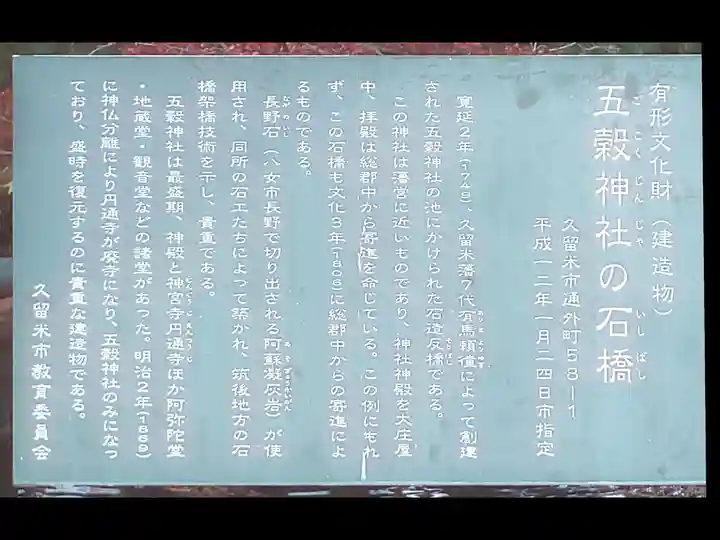 有形文化財（建造物）
五穀神社の石橋
ごこくじんじゃ いしばし
久留米市通外町５８ー１
平成一二年一月二四日市指定
寛延２年(1749)、久留米藩７代有馬頼徸によって創建
された五穀神社の池にかけられた石造反橋である。
この神社は藩営に近いものであり、神社神殿を大庄屋
中、拝殿は総郡中から寄進を命じている。この例にもれ
ず、この石橋も文化３年(1806)に総郡中からの寄進によ
るものである。
長野石（八女市長野で切り出される阿蘇凝灰岩）が使
用され、同所の石工たちによって築かれ、筑後地方の石
橋架橋技術を示し、貴重である。
五穀神社は最盛期、神殿と神宮寺円通寺ほか阿弥陀堂
・地蔵堂・観音堂などの諸堂があった。明治２年(1869)
に神仏分離により円通寺が廃寺になり、五穀神社のみになっ
ており、盛時を復元するのに貴重な建造物である。
久留米市教育委員会